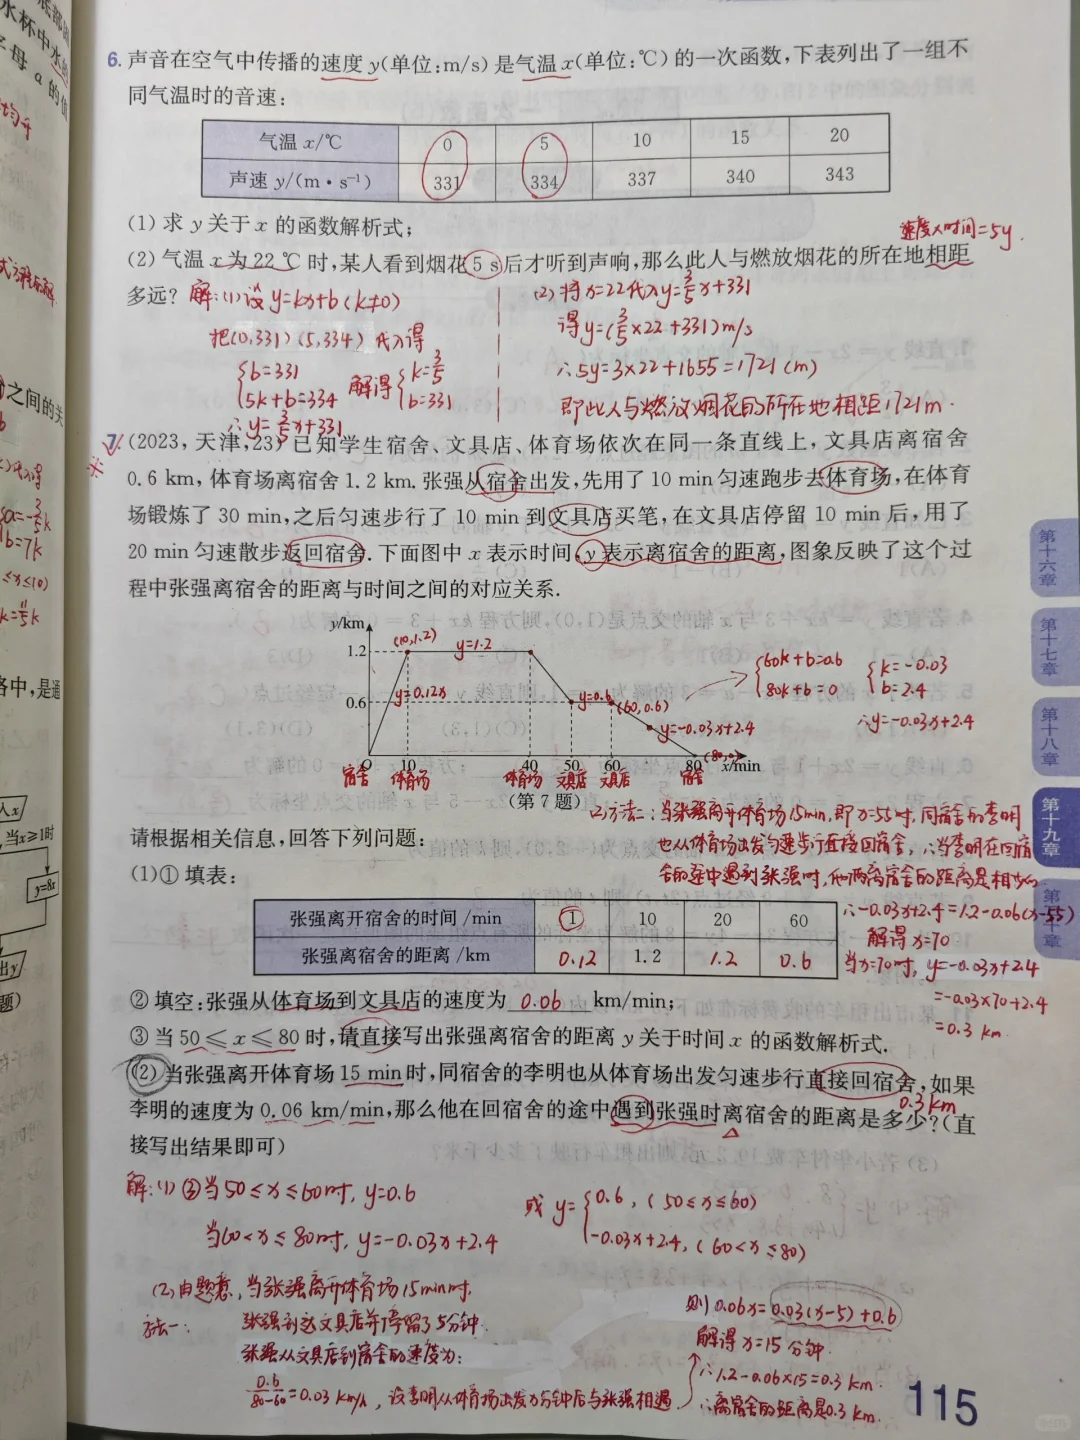 底部的
水杯中水的
字母 a 的值
6. 声音在空气中传播的速度 y(单位:m/s)是气温 x(单位:℃)的一次函数,下表列出了一组不
同气温时的音速:
气温 x/℃ 0 5 10 15 20
声速 y/(m·s⁻¹) 331 334 337 340 343
(1) 求 y 关于 x 的函数解析式;
速度×时间=5y.
(2) 气温 x 为 22 ℃ 时,某人看到烟花 5 s 后才听到声响,那么此人与燃放烟花的所在地相距
多远?
解:(1)设 y=kx+b (k≠0)
把(0,331) (5,334) 代入得
{b=331
5k+b=334
解得 {k=3/5
b=331
∴ y=3/5x+331
(2) 将x=22代入y=3/5x+331
得y=(3/5×22+331)m/s
∴5y=3×22+1655=1721(m)
即此人与燃放烟花的所在地相距1721m.
7. (2023,天津,23) 已知学生宿舍、文具店、体育场依次在同一条直线上,文具店离宿舍
0.6 km,体育场离宿舍 1.2 km. 张强从宿舍出发,先用了 10 min 匀速跑步去体育场,在体育
场锻炼了 30 min,之后匀速步行了 10 min 到文具店买笔,在文具店停留 10 min 后,用了
20 min 匀速散步返回宿舍. 下面图中 x 表示时间,y 表示离宿舍的距离,图象反映了这个过
程中张强离宿舍的距离与时间之间的对应关系.
y/km
(10,1.2)
1.2
y=1.2
0.6
y=0.12x
y=0.6
(60,0.6)
y=-0.03x+2.4
{60k+b=0.6
80k+b=0
{k=-0.03
b=2.4
∴y=-0.03x+2.4
(80,0)
O 10 40 50 60 80 x/min
宿舍 体育场 体育场 文具店 文具店 宿舍
(第 7 题)
(2)方法二:当张强离开体育场15min,即x=55时,同宿舍的李明
也从体育场出发匀速步行直接回宿舍,∴当李明在回宿
舍的途中遇到张强时,他俩离宿舍的距离是相等的
∴-0.03x+2.4=1.2-0.06(x-55)
解得 x=70
当x=70时, y=-0.03x+2.4
=-0.03×70+2.4
=0.3 km.
请根据相关信息,回答下列问题:
(1)① 填表:
张强离开宿舍的时间/min 1 10 20 60
张强离宿舍的距离/km 0.12 1.2 1.2 0.6
② 填空:张强从体育场到文具店的速度为 0.06 km/min;
③ 当 50≤x≤80 时,请直接写出张强离宿舍的距离 y 关于时间 x 的函数解析式.
(2) 当张强离开体育场 15 min 时,同宿舍的李明也从体育场出发匀速步行直接回宿舍,如果
0.3km
李明的速度为 0.06 km/min,那么他在回宿舍的途中遇到张强时离宿舍的距离是多少?(直
接写出结果即可)
解:(1) ③当50≤x≤60时, y=0.6
当60<x≤80时, y=-0.03x+2.4
或 y={0.6, (50≤x≤60)
-0.03x+2.4, (60<x≤80)
(2)由题意,当张强离开体育场15min时,
法一:
张强到达文具店并停留了5分钟.
张强从文具店到宿舍的速度为:
0.6/80-60=0.03 km/h, 设李明从体育场出发x分钟后与张强相遇
则 0.06x=0.03(x-5)+0.6
解得 x=15 分钟.
∴1.2-0.06×15=0.3 km.
∴离宿舍的距离是0.3 km.
115
第十六章
第十七章
第十八章
第十九章
第二十章
之间的关
当x≥1时
y=8x